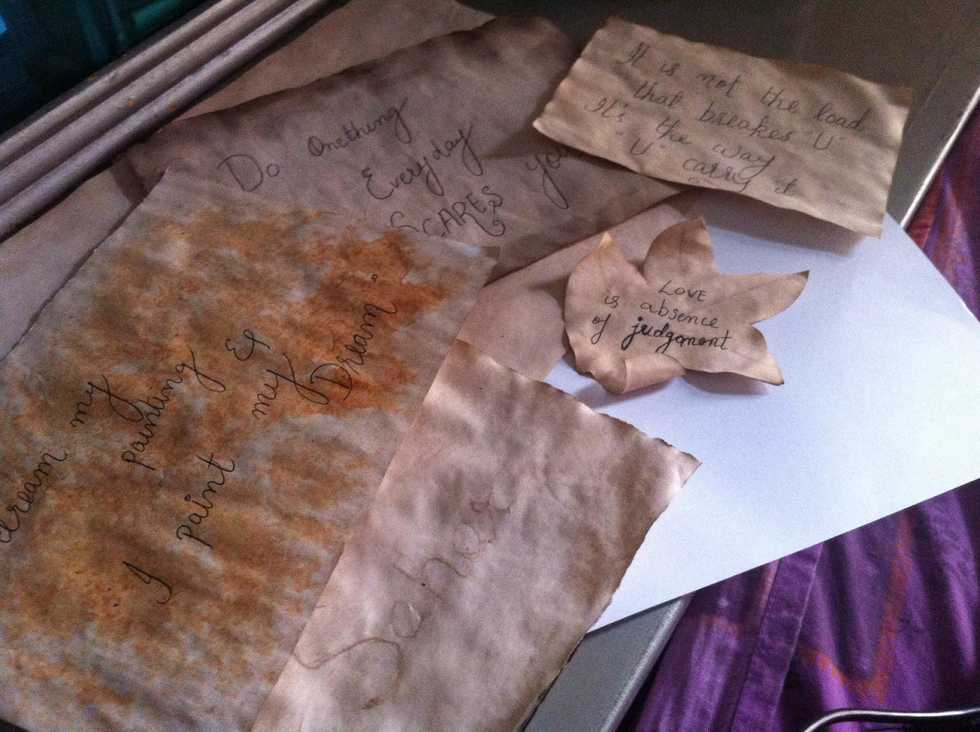 Do Onething
Everyday
SCARES you
It is not the load
that breakes U
It's the way
U carry it
LOVE
is absence
of judgement
dream my
painting &
I paint my
Dream.
Saher